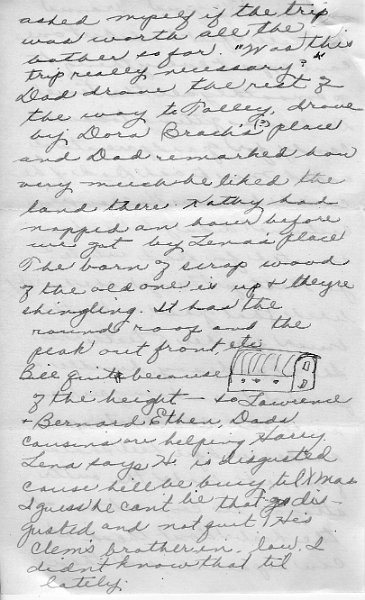 asked myself if the trip
was worth all the
bother so far. "Was this
trip really necessary?"
Dad drove the rest of
the way to Talley, drove
by Dora Brachs (?) place
and Dad remarked how
very much he liked the
land there. Kathy had
napped an hour before
we got by Lena's place
The barn of scrap wood
of the old one is up & theyre
shingling. It has the
round roof and the
peak out front, etc
Bill quit because
of the height — so Lawrence
& Bernard Ethen, Dads
cousins are helping Harry
Lena says H. is disgusted
cause hell be busy til Xmas
I guess he cant be that dis-
gusted and not quit! He's
Clem's brother in law. I
didn't know that til
lately.